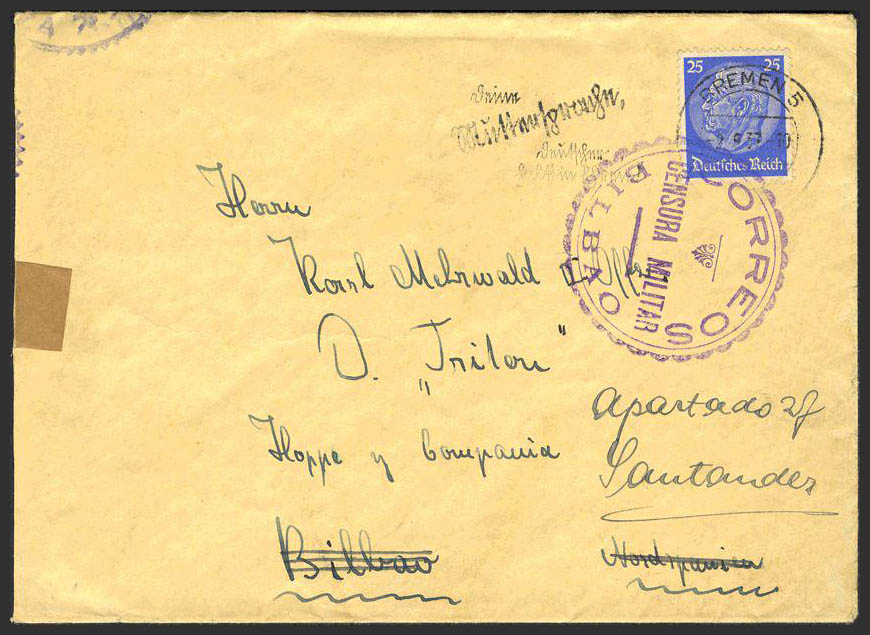 25 25
Deutsches Reich
BREMEN 5
deine
Muttersprache,
deutscher
CORREOS
CENSURA MILITAR
BILBAO
Herrn
Karl Mehrwald
D. „Triton"
Hoppe y Compania
Bilbao
Apartado 27
Santander
Nordspanien